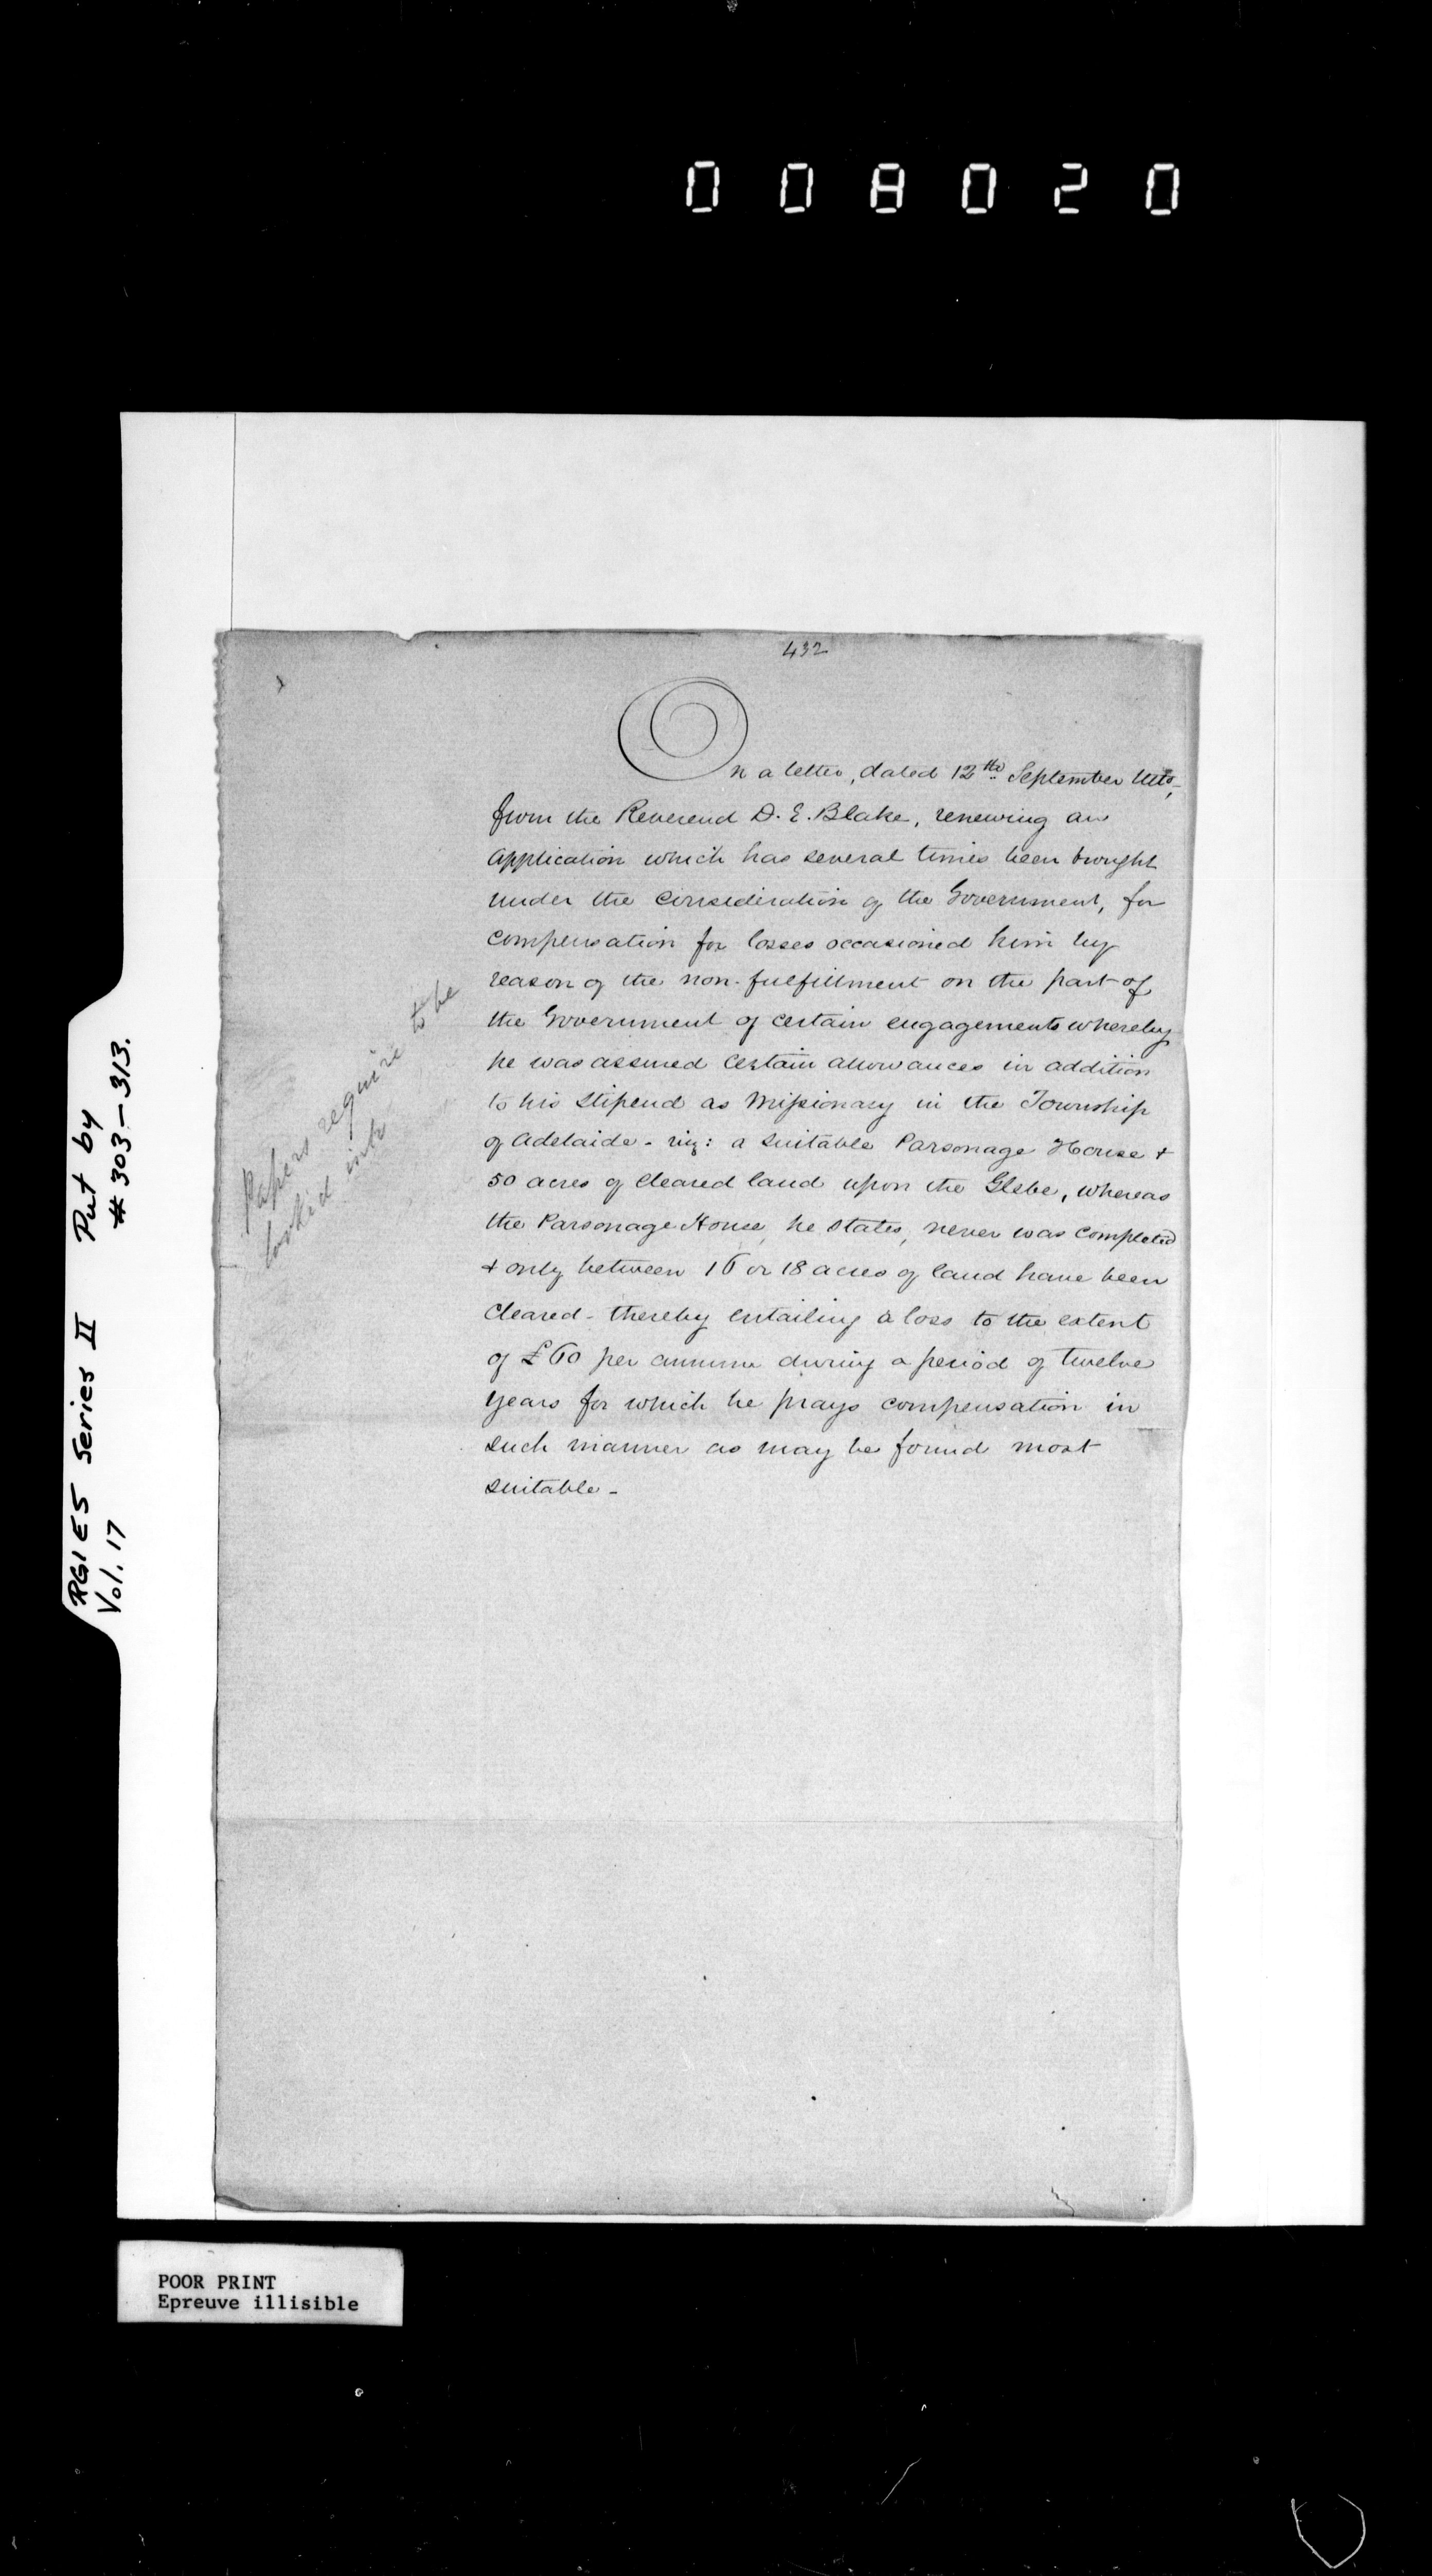 008020
432
On a letter, dated 12th September Ulto,
from the Reverend D. E. Blake, renewing an
application which has several times been brought
under the consideration of the Government, for
compensation for losses occasioned him by
reason of the non-fulfillment on the part of
the Government of certain engagements whereby
he was assured certain allowances in addition
to his stipend as Missionary in the Township
of Adelaide - viz: a suitable Parsonage House +
50 acres of cleared land upon the Glebe, whereas
the Parsonage House, he states, never was completed
+ only between 16 or 18 acres of land have been
cleared - thereby entailing a loss to the extent
of £60 per annum during a period of twelve
years for which he prays compensation in
such manner as may be found most
suitable -
Papers require to be
looked into
RG1 E5 Series II Put by
Vol. 17 #303-313.
POOR PRINT
Epreuve illisible